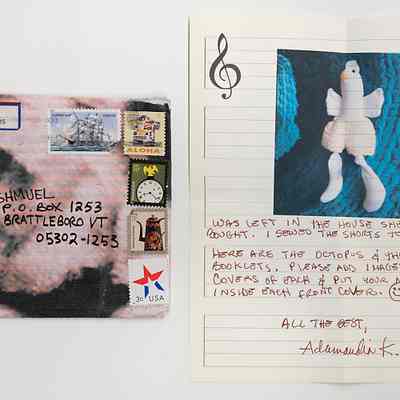 SHMUEL
P.O. BOX 1253
BRATTLEBORO VT
05302-1253
ALOHA
USA
WAS LEFT IN THE HOUSE SHE
BOUGHT. I SEWED THE SHORTS
HERE ARE THE OCTOPUS &
BOOKLETS. PLEASE ADD
COVERS OF EACH & PUT YOUR
INSIDE EACH FRONT COVER.
ALL THE BEST,
K.